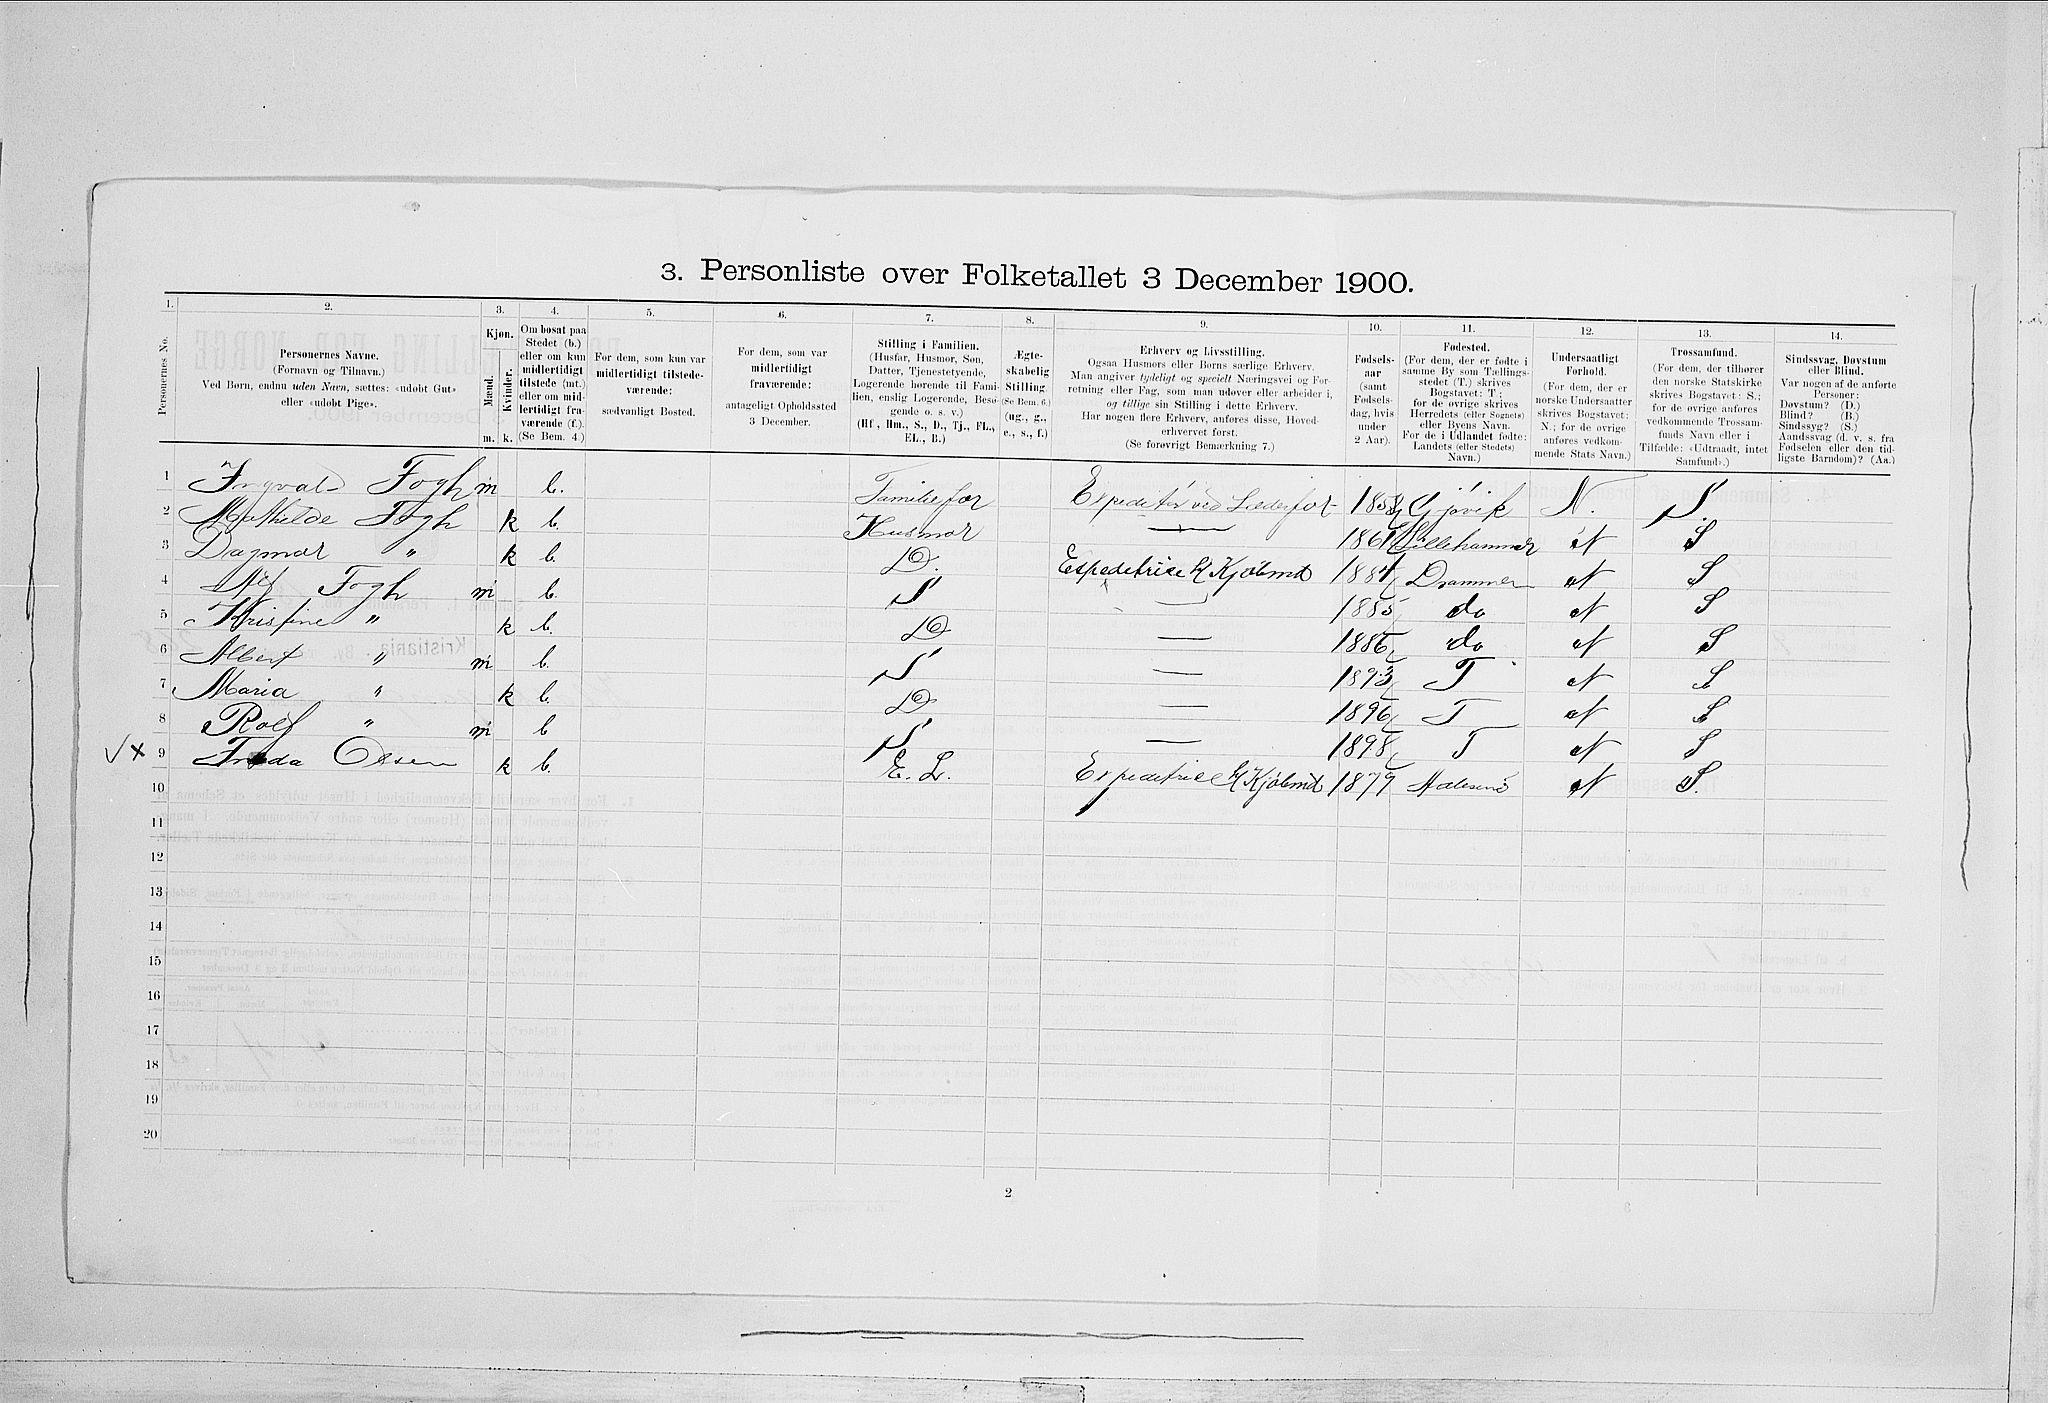 3. Personliste over Folketallet 3 December 1900.
1. 2. 3. 4. 5. 6. 7. 8. 9. 10. 11. 12. 13. 14.
Personernes No.
Personernes Navne.
(Fornavn og Tilnavn.)
Ved Børn, endnu uden Navn, sættes: «udøbt Gut»
eller «udøbt Pige».
Kjøn.
Mænd.
Kvinder.
m. k.
Om bosat paa
Stedet (b.)
eller om kun
midlertidigt
tilstede (mt.)
eller om mid-
lertidigt fra-
værende (f.).
(Se Bem. 4.)
For dem, som kun var
midlertidigt tilstede-
værende:
sædvanligt Bosted.
For dem, som var
midlertidigt
fraværende:
antageligt Opholdssted
3 December.
Stilling i Familien.
(Husfar, Husmor, Søn,
Datter, Tjenestetyende,
Logerende hørende til Fami-
lien, enslig Logerende, Besø-
gende o. s. v.)
(Hf., Hm., S., D., Tj., FL.,
EL., B.)
Ægte-
skabelig
Stilling.
(Se Bem. 6.)
(ug., g.,
e., s., f.)
Erhverv og Livsstilling.
Ogsaa Husmors eller Børns særlige Erhverv.
Man angiver tydeligt og specielt Næringsvei og For-
retning eller Fag, som man udøver eller arbeider i,
og tillige sin Stilling i dette Erhverv.
Har nogen flere Erhverv, anføres disse, Hoved-
erhvervet først.
(Se forøvrigt Bemærkning 7.)
Fødsels-
aar
(samt
Fødsels-
dag, hvis
under
2 Aar).
Fødested.
(For dem, der er fødte i
samme By som Tællings-
stedet (T.) skrives
Bogstavet: T;
for de øvrige skrives
Herredets (eller Sognets)
eller Byens Navn.
For de i Udlandet fødte:
Landets (eller Stedets)
Navn.)
Undersaatligt
Forhold.
(For dem, der er
norske Undersaatter
skrives Bogstavet:
N.; for de øvrige
anføres vedkom-
mende Stats Navn.)
Trossamfund.
(For dem, der tilhører
den norske Statskirke
skrives Bogstavet: S.;
for de øvrige anføres
vedkommende Trossam-
funds Navn eller i
Tilfælde: «Udtraadt, intet
Samfund».)
Sindssvag, Døvstum
eller Blind.
Var nogen af de anførte
Personer:
Døvstum? (D.)
Blind? (B.)
Sindssyg? (S.)
Aandssvag (d. v. s. fra
Fødselen eller den tid-
ligste Barndom)? (Aa.)
1 Ingvald Fogh m b. Familiefar Expeditør ved Læderfor- 1858 Gjøvik N. S.
2 Mathilde Fogh k b. Husmor — 1861 Lillehammer N S
3 Dagmar " k b. D. Expeditrice Kjøbmd 1884 Drammen N S
4 Fogh m b. S — 1885 do N S
5 Kristine " k b. D — 1886 do N S
6 Albert " m b. S — 1893 T N S
7 Maria " k b. D — 1896 T N S
8 Rolf " m b S — 1898 T N S
√x 9 Olsen k b. E. L. Expeditrice Kjøbmd 1879 Aalesund N S.
10
11
12
13
14
15
16
17
18
19
20
2